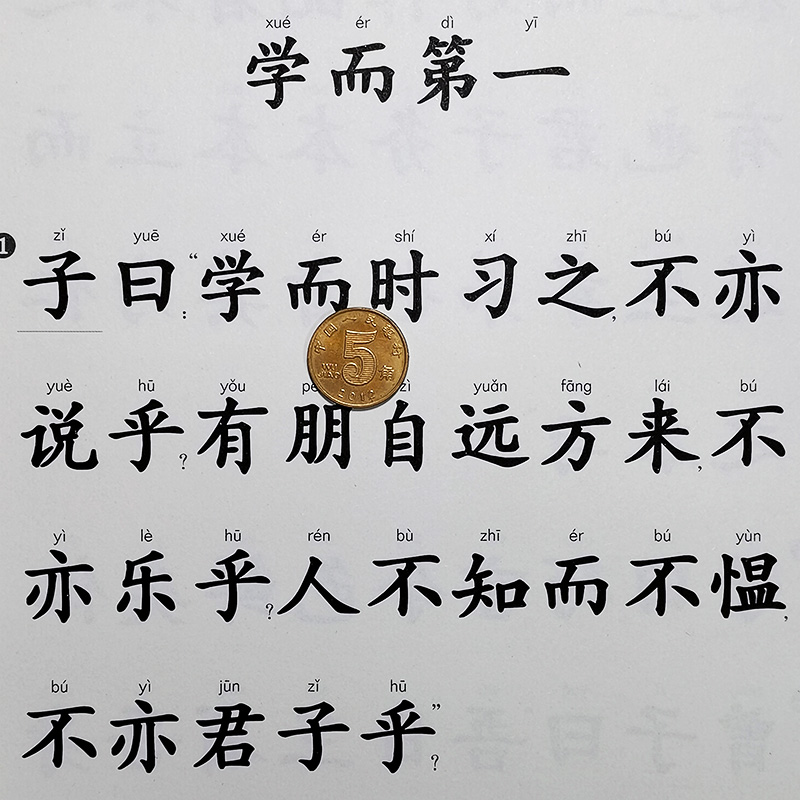 xué ér dì yī
学而第一
1
zǐ yuē xué ér shí xí zhī bú yì
子曰:“学而时习之,不亦
中国人民银行
5
WU JIAO 角
2012
yuè hū yǒu zì yuǎn fāng lái bú
说乎?有朋自远方来,不
yì lè hū rén bù zhī ér bú yùn
亦乐乎?人不知而不愠,
bú yì jūn zǐ hū
不亦君子乎”?